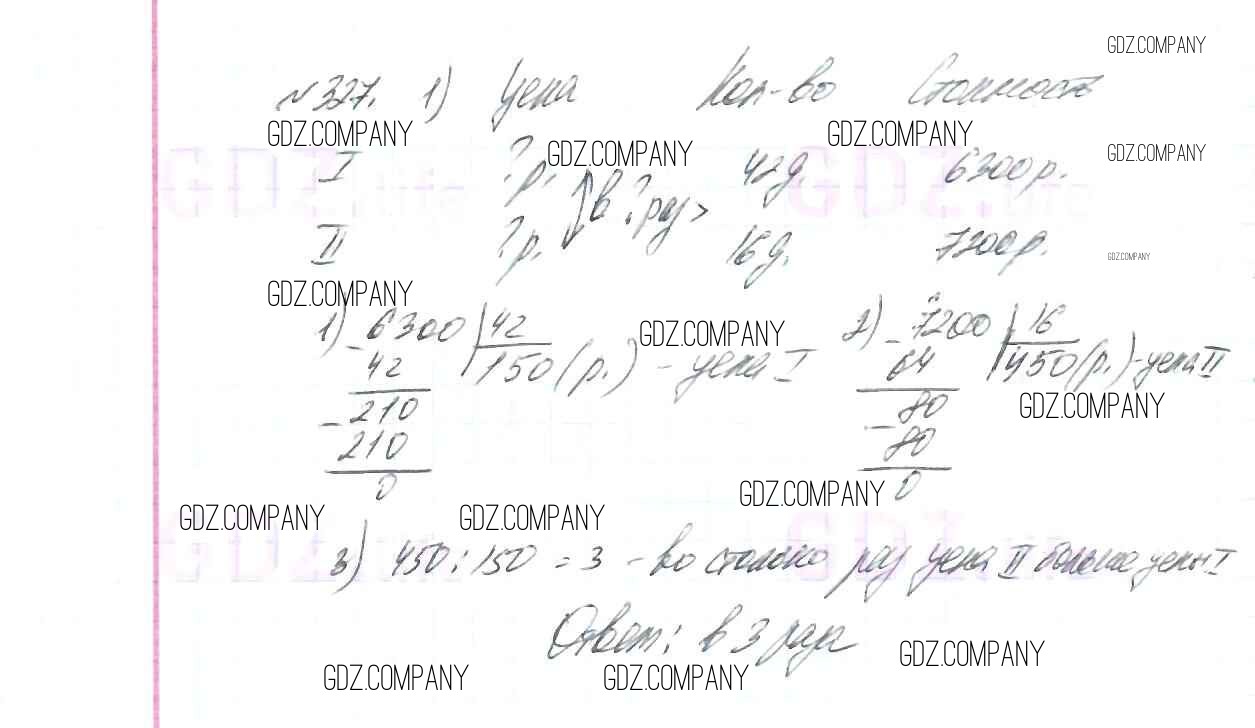 GDZ.COMPANY
№327. 1) Цена Кол-во Стоимость
GDZ.COMPANY GDZ.COMPANY
GDZ.COMPANY GDZ.COMPANY
I ?р. 42д. 6300р.
в ? раз >
II ?р. 16д. 7200р.
GDZ.COMPANY
GDZ.COMPANY
1) 6300 | 42 2) 7200 | 16
GDZ.COMPANY
- 42 150 (р.) - цена I - 64 450 (р.) - цена II
GDZ.COMPANY
- 210 - 80
210 80
0 0
GDZ.COMPANY
GDZ.COMPANY GDZ.COMPANY
3) 450 : 150 = 3 - во столько раз цена II больше цены I
Ответ: в 3 раза
GDZ.COMPANY
GDZ.COMPANY GDZ.COMPANY